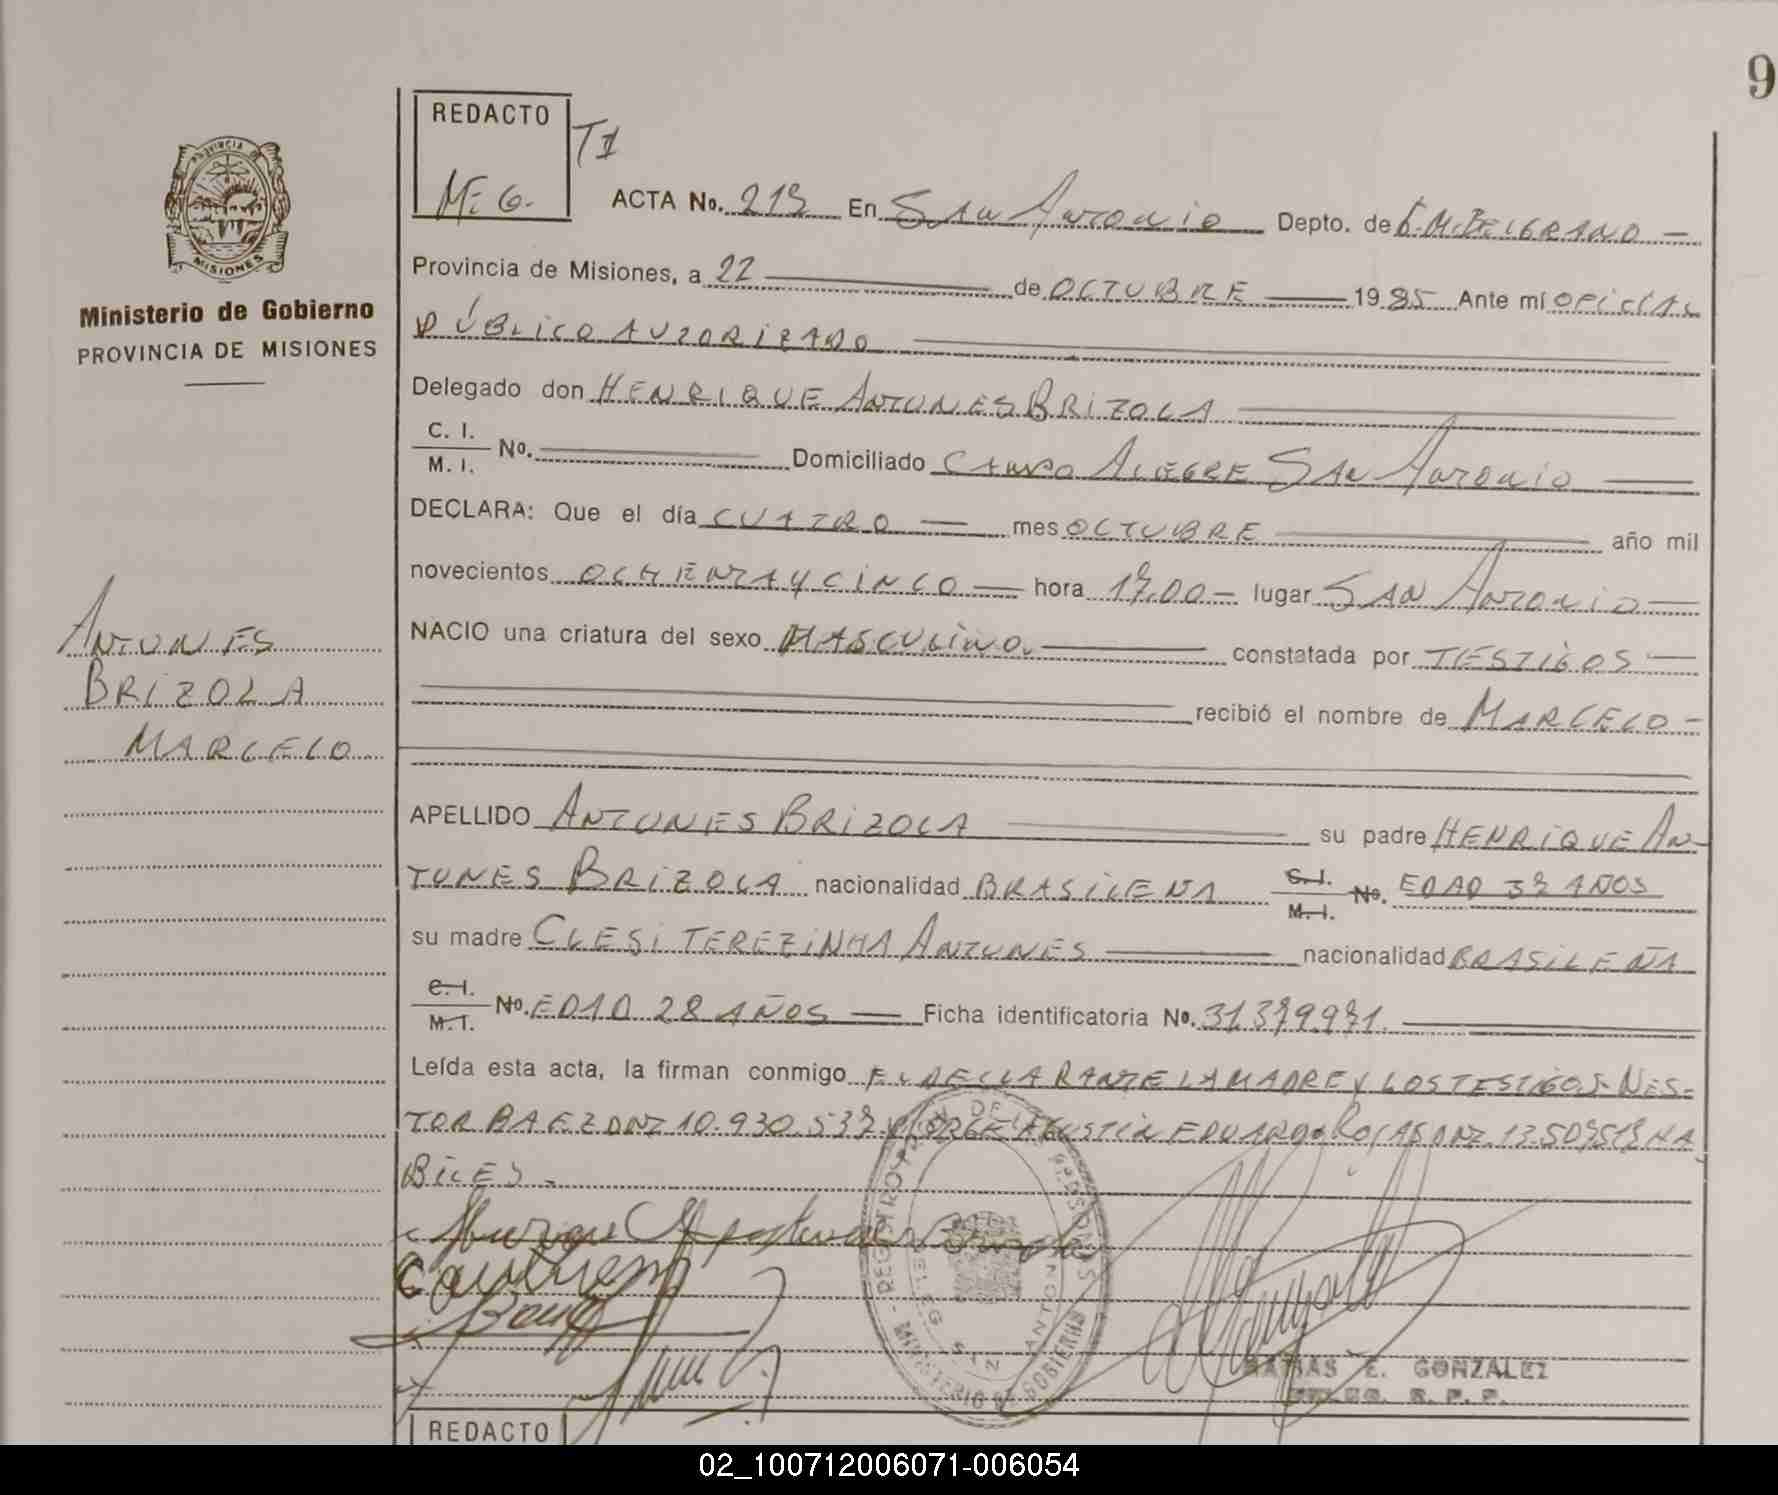 9
REDACTO
T1
M. G.
PROVINCIA
MISIONES
Ministerio de Gobierno
PROVINCIA DE MISIONES
ANTUNES
BRIZOLA
MARCELO
ACTA No. 219 En SAN ANTONIO Depto. de G.M.BELGRANO -
Provincia de Misiones, a 22 de OCTUBRE 1985 Ante mí OFICIAL
PÚBLICO AUTORIZADO
Delegado don HENRIQUE ANTUNES BRIZOLA
C. I.
M. I. No. Domiciliado CAMPO ALEGRE SAN ANTONIO
DECLARA: Que el día CUATRO mes OCTUBRE año mil
novecientos OCHENTA Y CINCO hora 17,00 - lugar SAN ANTONIO
NACIO una criatura del sexo MASCULINO. constatada por TESTIGOS
recibió el nombre de MARCELO -
APELLIDO ANTUNES BRIZOLA su padre HENRIQUE AN-
TUNES BRIZOLA nacionalidad BRASILENA C. I. M. I. No. EDAD 37 AÑOS
su madre CLESI TEREZINHA ANTUNES nacionalidad BRASILEÑA
C. I.
M. I. No. EDAD 28 AÑOS Ficha identificatoria No. 31.379.971.
Leída esta acta, la firman conmigo EL DECLARANTE LA MADRE Y LOS TESTIGOS - NES-
TOR BAEZ DNI 10.930.537 Y JORGE AGUSTIN EDUARDO ROJAS DNI 13.509519 HA
BILES -
REGISTRO PROV. DE LAS PERSONAS
DELEG. SAN ANTONIO
MINISTERIO DE GOBIERNO
MATIAS E. GONZALEZ
DELEG. R. P. P.
REDACTO
02_100712006071-006054